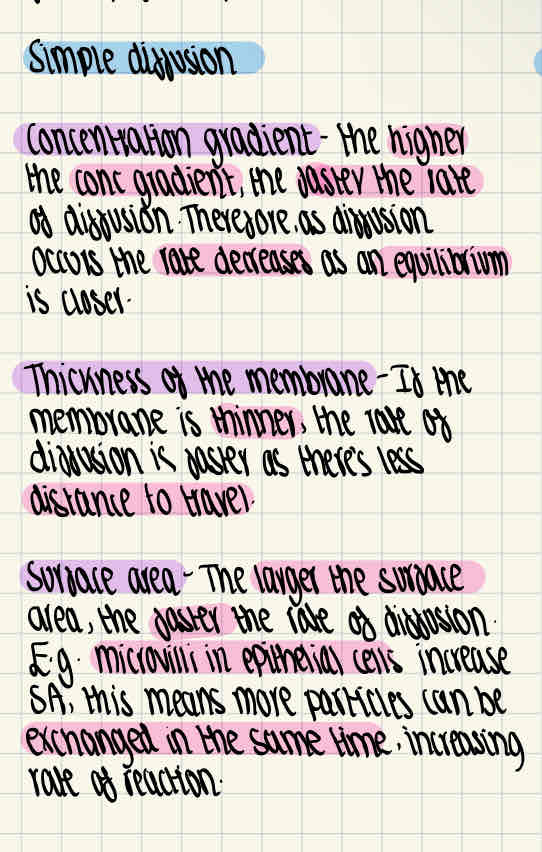 Simple diffusion
Concentration gradient - the higher
the conc gradient, the faster the rate
of diffusion. Therefore, as diffusion
occurs the rate decreases as an equilibrium
is closer.
Thickness of the membrane - If the
membrane is thinner, the rate of
diffusion is faster as there's less
distance to travel.
Surface area - The larger the surface
area, the faster the rate of diffusion.
E.g. microvilli in epithelial cells increase
SA, this means more particles can be
exchanged in the same time, increasing
rate of reaction.